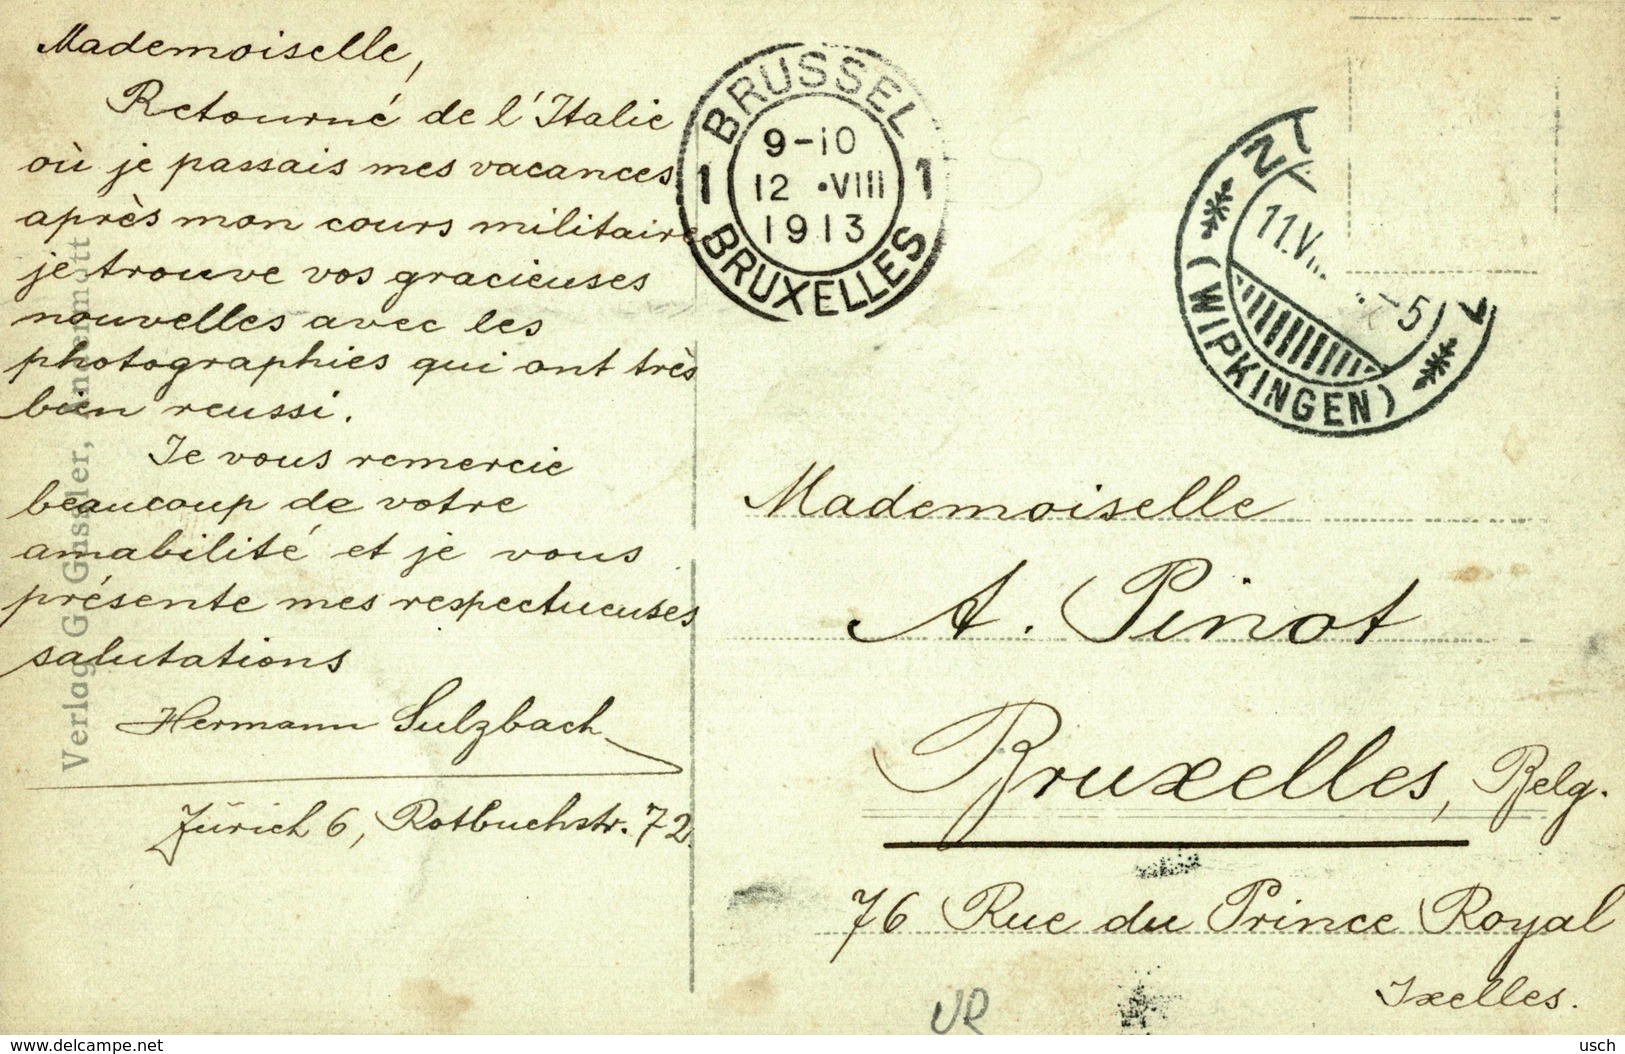 Mademoiselle,
Retourné de l'Italie
où je passais mes vacances
après mon cours militaire
je trouve vos gracieuses
nouvelles avec les
photographies qui ont très
bien reussi.
Je vous remercie
beaucoup de votre
amabilité et je vous
présente mes respectueuses
salutations
Hermann Sulzbach
Zürich 6, Rotbuchstr. 72.
Verlag G. Gnseler,
BRUSSEL
9-10
1 12 •VIII 1
1913
BRUXELLES
11.V
-5
(WIPKINGEN)
Mademoiselle
A. Pinot
Bruxelles, Belg.
76 Rue du Prince Royal
Ixelles.
VR
www.delcampe.net
usch